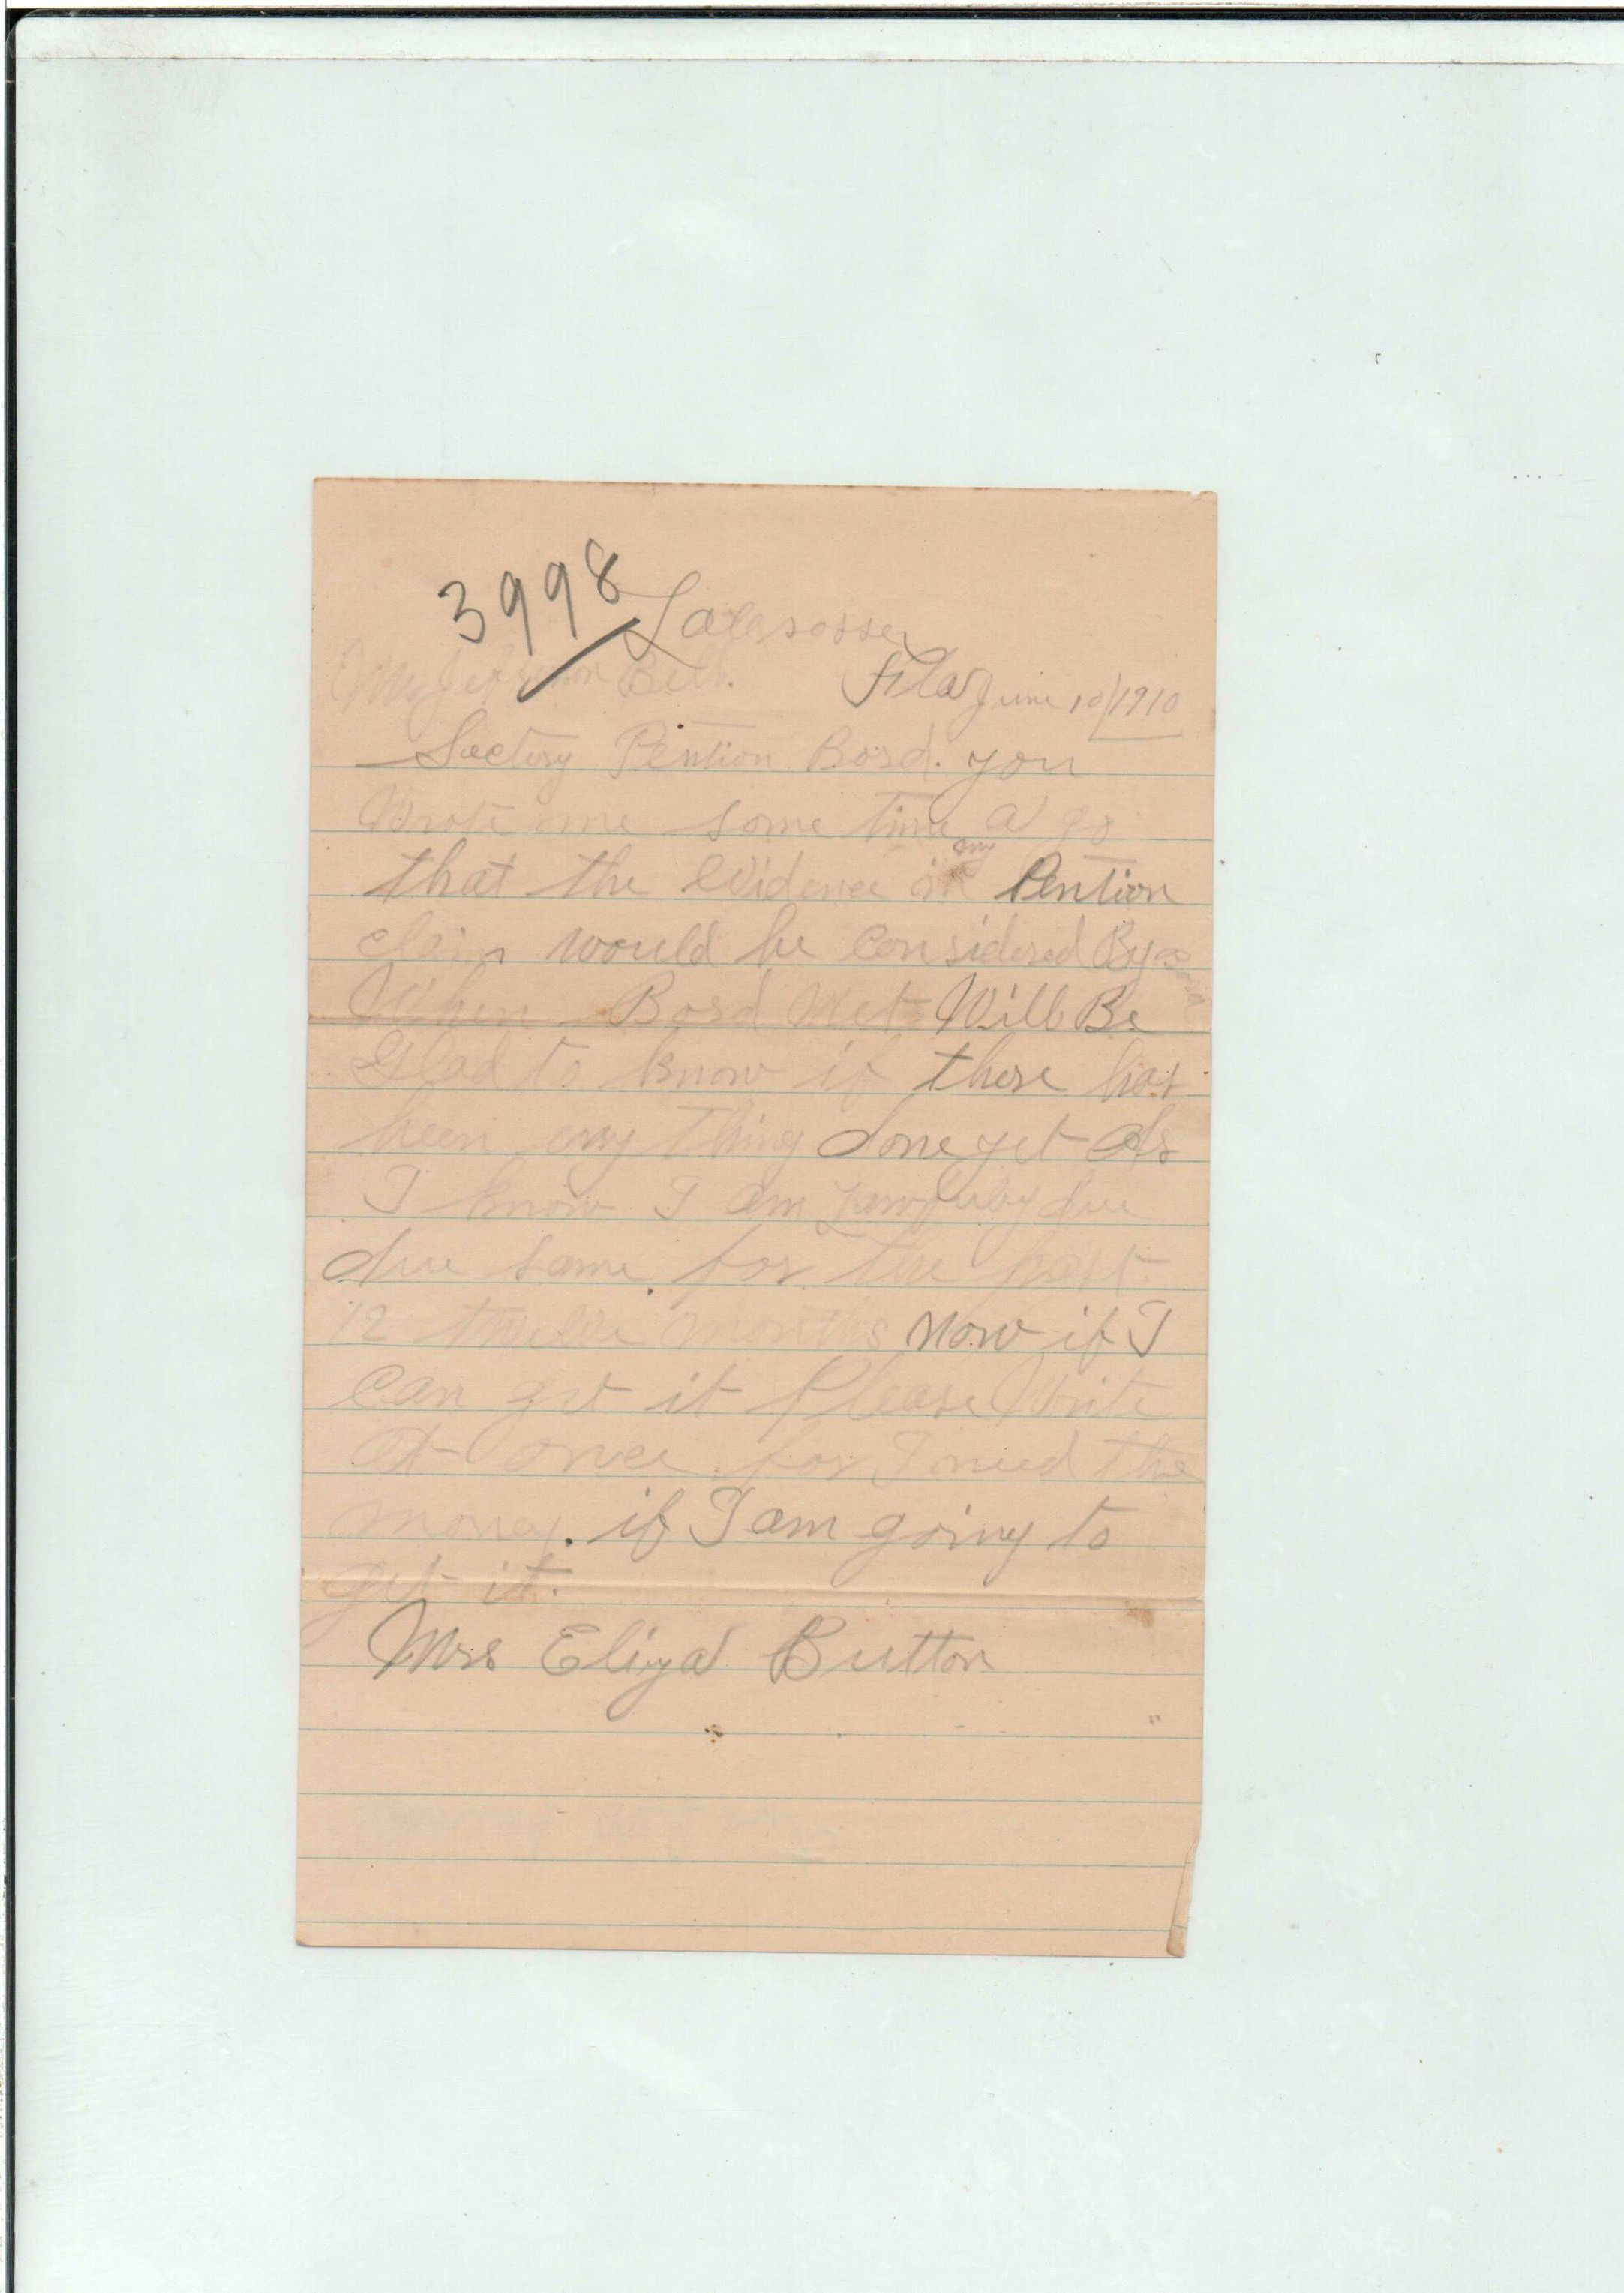 3998
Lacrosse
Mr Jefferson Bell. Fla June 10/1910
Sectery Pention Bord. you
Wrote me some time a go
that the Evidence in my Pention
claim would be Considered By
When Bord Met Will Be
Glad to know if there has
been any thing done yet as
I know I am Lawfuly due
due same for the past
12 twelve months Now if I
Can get it Please Write
at once for I need the
money. if I am going to
get it.
Mrs Eliza Button